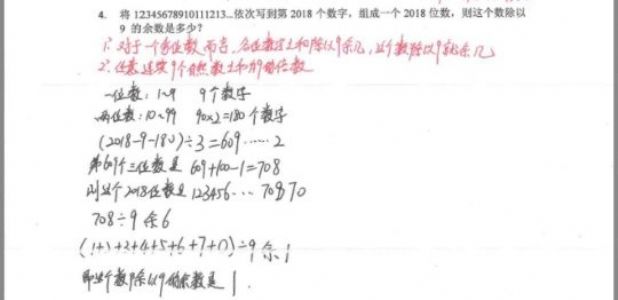 4. 将 12345678910111213…依次写到第 2018 个数字，组成一个 2018 位数，则这个数除以
9 的余数是多少？
1. 对于一个多位数而言，各位数字之和除以9余几，这个数除以9就余几
2. 任意连续9个自然数之和为9的倍数
一位数：1~9 9个数字
两位数：10~99 90×2=180个数字
(2018-9-180)÷3=609……2
第609个三位数是 609+100-1=708
则这个2018位数是 123456… 70870
708÷9 余6
(1+2+3+4+5+6+7+0)÷9 余1
即这个数除以9的余数是1.